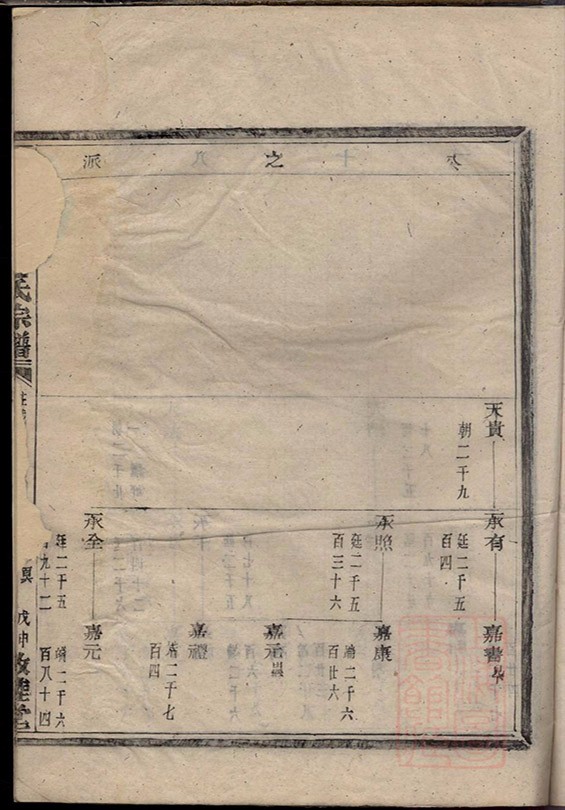 公十八之派
天貴
朝二千九
承有
廷二千五
百四
嘉書
承照
廷二千五
百三十六
嘉康
百廿六
嘉元
嘉禮
二千七
百四
承全
廷二千五
九十二
嘉元
二千六
百八十四
氏宗譜
戊申
敦建堂